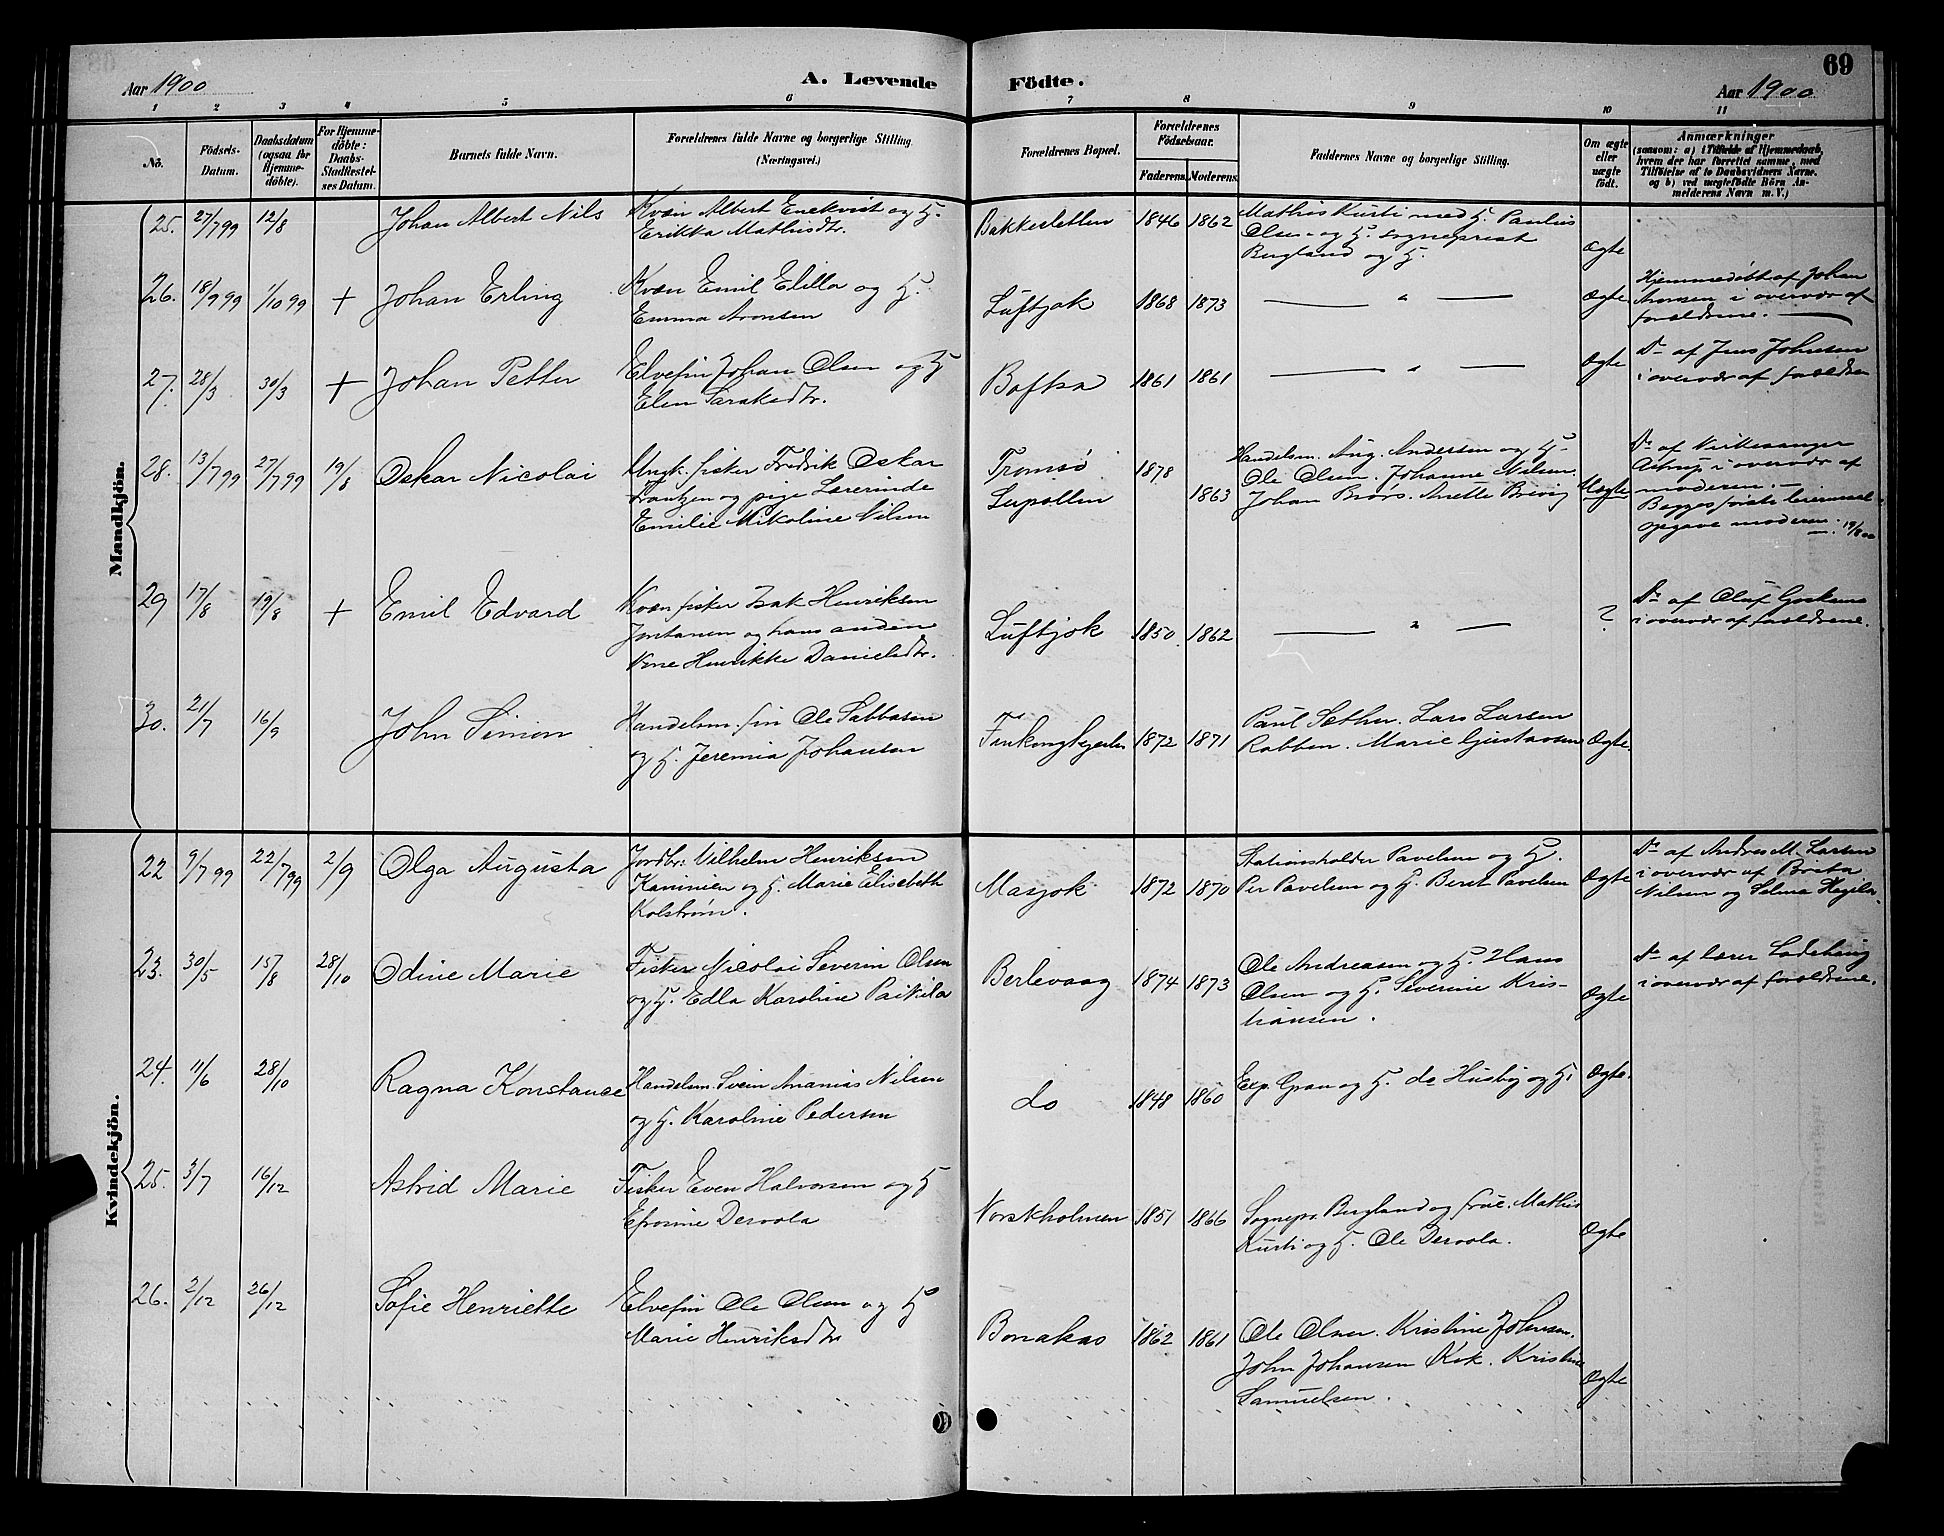 69
Aar 1900
A. Levende Födte.
Aar 1900
1 2 3 4 5 6 7 8 9 10 11
No.
Födsels-
Datum.
Daabsdatum
(ogsaa for
Hjemme-
döbte).
For Hjemme-
döbte:
Daabs-
Stadfæstel-
ses Datum.
Barnets fulde Navn.
Forældrenes fulde Navne og borgerlige Stilling
(Næringsvei.)
Forældrenes Bopæl.
Forældrenes
Födselsaar.
Faderens. Moderens.
Faddernes Navne og borgerlige Stilling.
Om ægte
eller
uægte
födt.
Anmærkninger
(saasom: a) i Tilfælde af Hjemmedaab,
hvem der har forrettet samme, med
Tilföielse af to Daabsvidners Navne,
og b) ved uægtefödte Börn An-
melderens Navn m. V.)
Mandkjön.
25. 27/7 99 12/8 Johan Albert Nils
Kvæn Albert Enekvist og H.
Erikka Mathisdtr.
Bakkesletten 1846 1862
Mathis Kusti med H. Paulus
Olsen og H. sogneprest
Bergland og H.
Ægte
26. 18/9 99 1/10 99 + Johan Erling
Kvæn Emil Elilla og H.
Emma Aronsen
Luftjok 1868 1873
— " —
Ægte
Hjemmedøbt af Johan
Aronsen i overvær af
forældrene. —
27. 28/3 30/3 + Johan Petter
Elvefin Johan Olsen og H
Elen Saraksdtr.
Boftsa 1861 1861
— " —
Ægte
Do af Jens Johnsen
i overvær af forældrene
28. 13/7 99 27/7 99 19/8 Oskar Nicolai
Ungk. fisker Fredrik Oskar
Frantzen og pige Lærerinde
Emilie Nikoline Nilsen
Tromsø
Leipollen
1878
1863
Handelsm. Aug. Andersen og H.
Ole Olsen. Johanne Nilsen.
Johan Brors. Anette Brevig
Uægte
Do af Kirkesanger
Astrup i overvær af
moderen. —
Begges første leiermaal
opgave moderen. 19/8 00
29 17/8 19/8 + Emil Edvard
Kvæn fisker Isak Henriksen
Jontanen og hans anden
Kone Henrikke Danielsdtr.
Luftjok 1850 1862
— " —
?
Do af Oluf
i overvær af forældrene.
30. 21/7 16/9 John Simon
Handelsm. fin Ole Sabbasen
og H. Jeremia Johansen
Finkongkjeilen 1872 1871
Paul Sæther. Lars Larsen
Rabben. Marie Gustavsen
Ægte.
Kvindekjön.
22 9/7 99 22/7 99 2/9 Olga Augusta
Jordbr: Vilhelm Henriksen
Kaninien og H. Marie Elisebeth
Kolstrøm.
Masjok 1872 1870
Stationsholder Pavelsen og H.
Per Pavelsen og H. Beret Pavelsen
Ægte
Do af Andreas M. Larsen
i overvær af Brita
Nilsen og Selma
23. 30/5 15/8 28/10 Odine Marie
Fisker Nicolai Severin Olsen
og H. Edla Karoline Paivila
Berlevaag 1874 1873
Ole Andreasen og H. Hans
Olsen og H. Severine Kris-
tiansen.
Ægte
Do af lærer Ladehaug
i overvær af forældrene.
24. 11/6 28/10 Ragna Konstance
Handelsm. Svein Ananias Nilsen
og H. Karoline Pedersen
do 1848 1860
Exp. Gran og H. do Husby og H.
Ægte.
25. 3/7 16/12 Astrid Marie
Fisker Even Halvorsen og H
Efrosine Dervola
Norskholmen 1851 1866
Sognepr. Bergland og frue. Mathis
Kusti og H. Ole Dervola.
Ægte
26. 2/12 26/12 Sofie Henriette
Elvefin Ole Olsen og H
Marie Henriksdtr
Bonakas 1862 1861
Ole Olsen. Kristine Johnsen.
John Johansen Kok. Kristine
Samuelsen.
Ægte